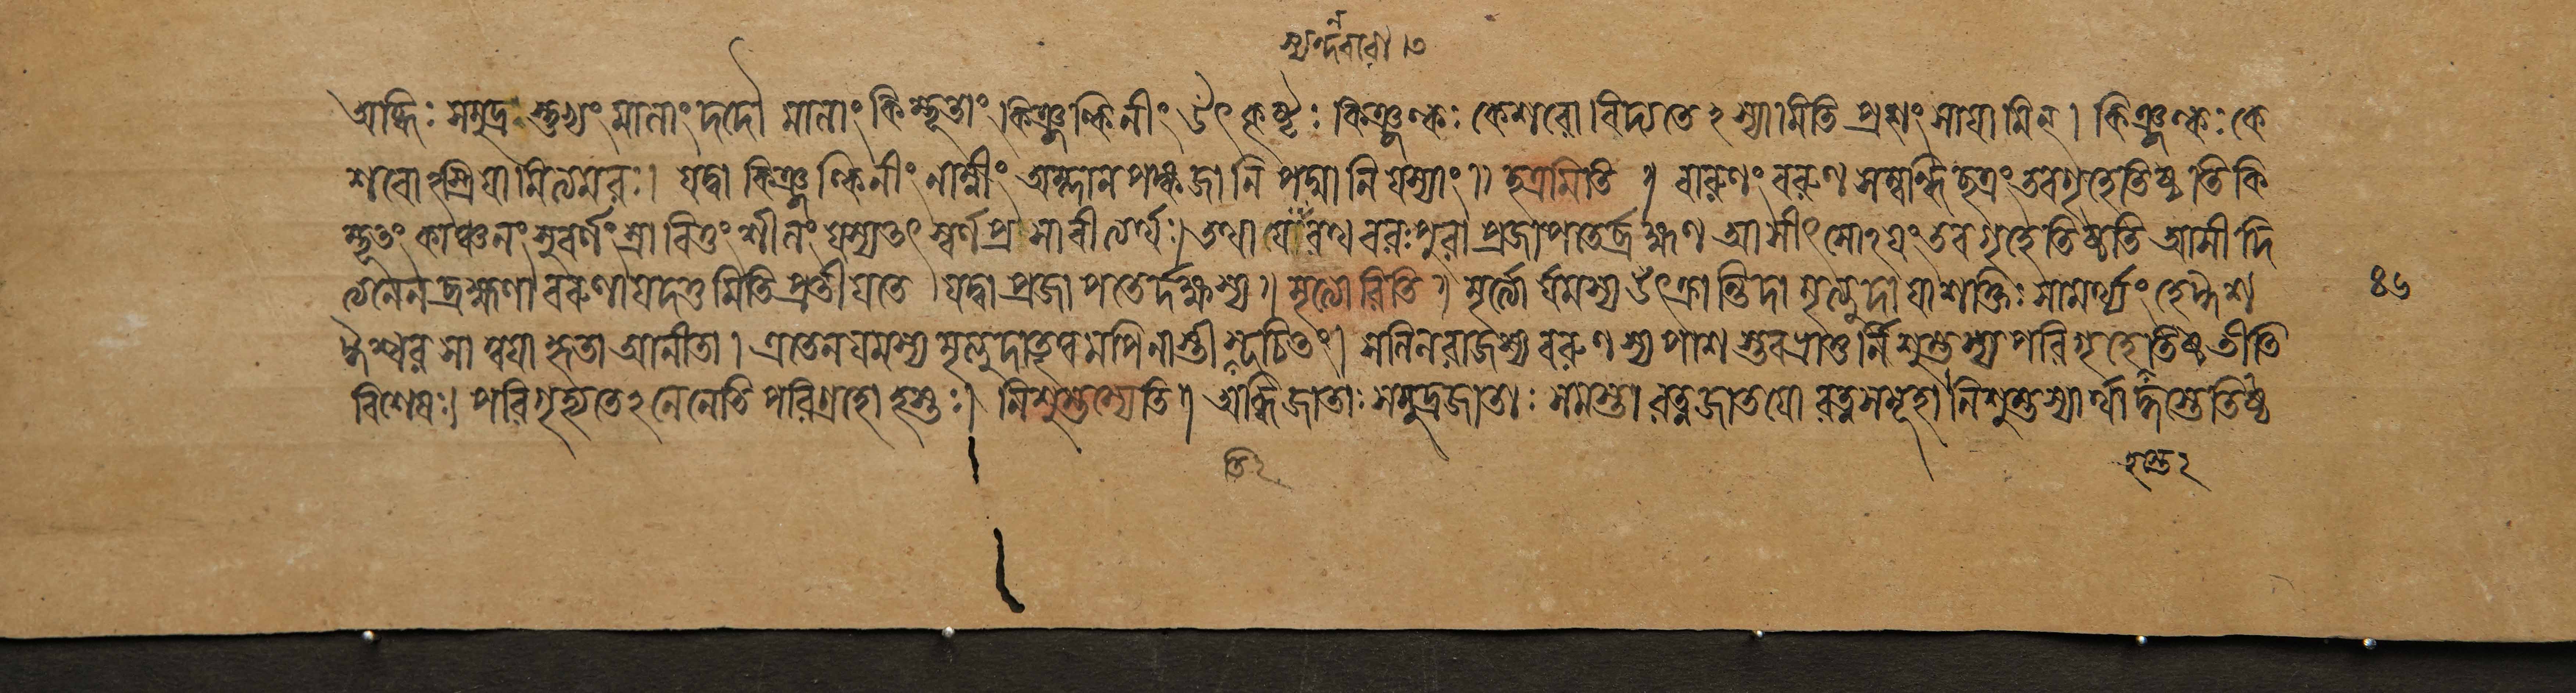 স্যন্দনবরা ।৩
অব্ধিঃ সমুদ্রস্তুভ্যং মালাং দদৌ মালাং কিম্ভূতাং কিঞ্জল্কিনীং উৎকৃষ্টঃ কিঞ্জল্কঃ কেশরো বিদ্যতেঽস্যামিতি প্রশংসাযামিন। কিঞ্জল্কঃ কে
শরোঽস্ত্রিযামিত্যমরঃ। যদ্বা কিঞ্জল্কিনীং নাম্নীং অম্লানপঙ্কজানি পদ্মানি যস্যাং॥ ছত্রমিতি। বারুণং বরুণসম্বন্ধি ছত্রং তব গৃহে তিষ্ঠতি কি
ম্ভূতং কাঞ্চনং সুবর্ণং স্রাবিতুং শীলং যস্য তৎ স্বর্ণপ্রস্রাবীত্যর্থঃ। তথা যো রথবরঃ পুরা প্রজাপতের্ব্রহ্মণ আসীৎ সোঽযং তব গৃহে তিষ্ঠতি আসীদি
ত্যনেন ব্রহ্মণা বরুণায দত্তমিতি প্রতীযতে। যদ্বা প্রজাপতের্দক্ষস্য। মৃত্যোরিতি। মৃত্যোর্যমস্য উৎক্রান্তিদা মৃত্যুদা যা শক্তিঃ সামর্থ্যং হে ঈশ ৪৬
দৈত্যেশ্বর সা ত্বযা হৃতা আনীতা। এতেন যমস্য মৃত্যুদাতৃত্বমপি নাস্তী সূচিতং। সলিলরাজস্য বরুণস্য পাশস্তব ভ্রাতুর্নিশুম্ভস্য পরিগৃহে তিষ্ঠতীতি
বিশেষঃ। পরিগৃহ্যতেঽনেনেতি পরিগ্রহো হস্তঃ। নিশুম্ভস্যেতি। অব্ধিজাতাঃ সমুদ্রজাতাঃ সমস্তা রত্নজাতযো রত্নসমূহা নিশুম্ভস্যার্থাদ্ধস্তে তিষ্ঠ
তি২